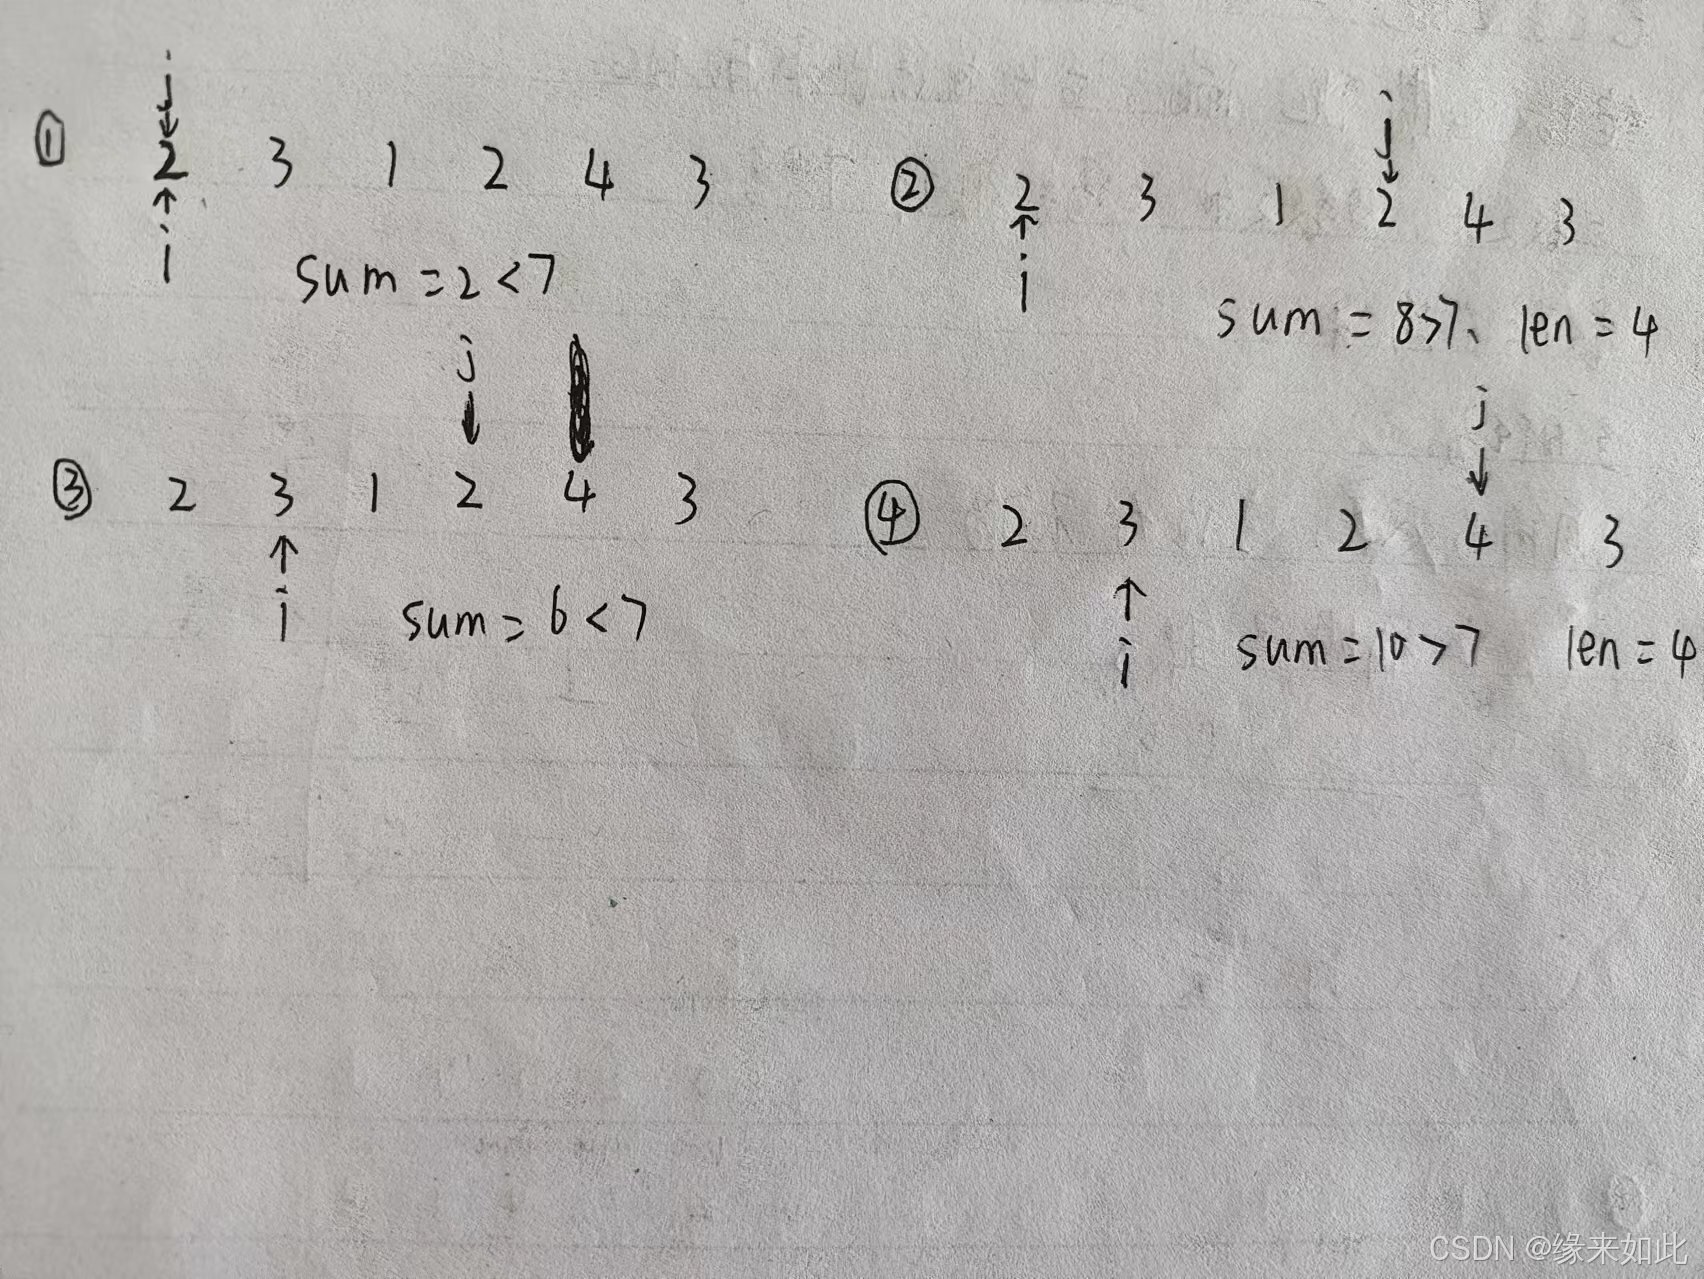 j
① 2 3 1 2 4 3
↑
i
sum = 2 < 7
j
② 2 3 1 2 4 3
↑
i
sum = 8>7、 len = 4
j
③ 2 3 1 2 4 3
↑
i
sum = 6 < 7
j
④ 2 3 1 2 4 3
↑
i
sum = 10 > 7 len = 4
CSDN @缘来如此